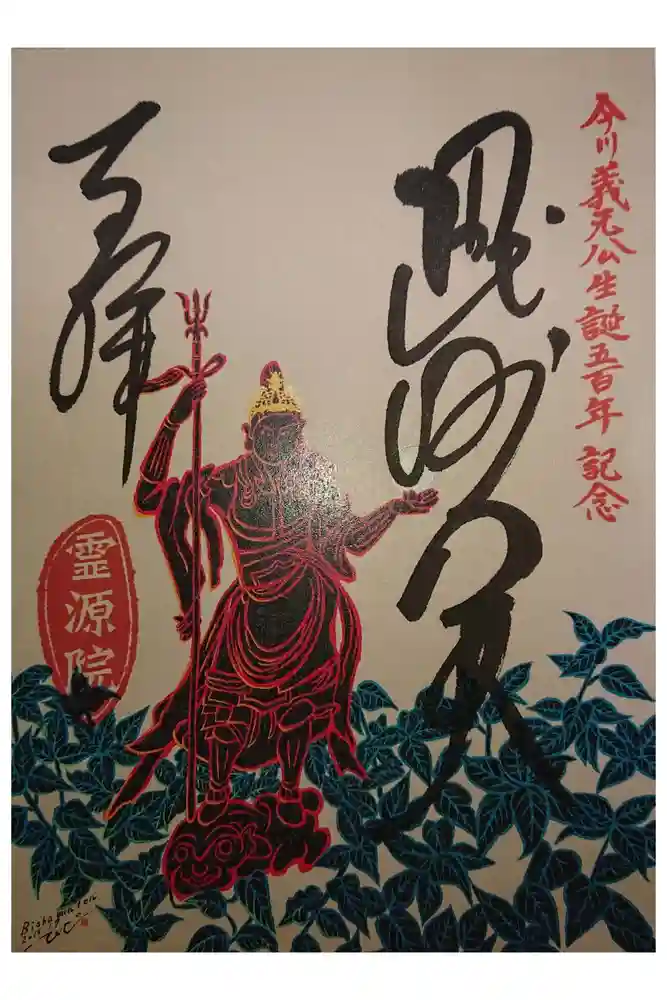 今川義元公生誕五百年 記念
毘沙門天
奉拝
霊源院
Bishamonten